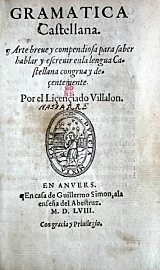 GRAMATICA
Castellana.
¶ Arte breue y compendiosa para saber
hablar y escreuir enla lengua Ca-
stellana congrua y de-
çentemente.
Por el Licenciado Villalon.
EN ANVERS.
¶ En casa de Guillermo Simon, ala
enseña del Abestruz.
M. D. LVIII.
Con gracia y Priuilegio.